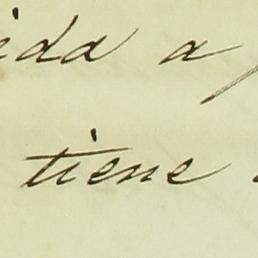 ida a
tiene